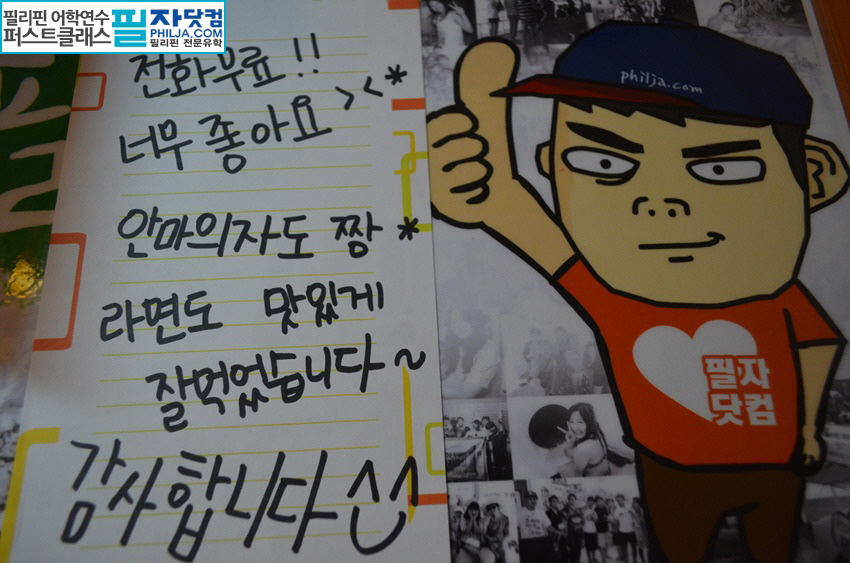 필리핀 어학연수
퍼스트클래스
필자닷컴
PHILJA.COM
필리핀 전문유학
전화무료!!
너무 좋아요 ><*
안마의자도 짱*
라면도 맛있게
잘먹었습니다~
감사합니다 ^^
philja.com
필자
닷컴